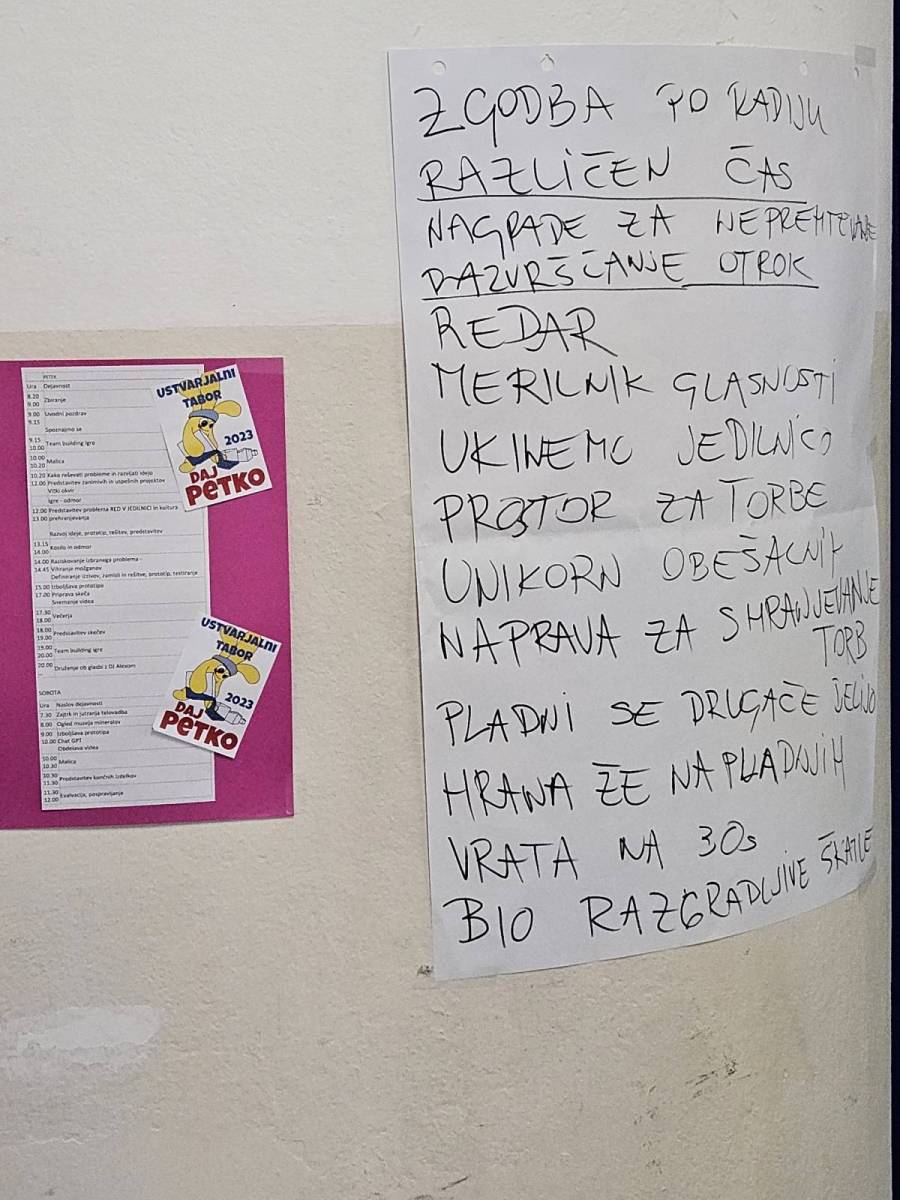 PETEK
Ura Dejavnost
8.20
9.00 Zbiranje
9.00 Uvodni pozdrav
9.15
Spoznajmo se
9.15
10.00 Team building igre
10.00
10.20 Malica
10.20 Kako reševati probleme in razvijati idejo
12.00 Predstavitev zanimivih in uspešnih projektov
Viški okvir
Igre - odmor
12.00 Predstavitev problema RED V JEDILNICI in kultura
13.00 prehranjevanja
Razvoj ideje, prototip, rešitev, predstavitev
13.15
14.00 Kosilo in odmor
14.00 Raziskovanje izbranega problema -
14.45 Viharjenje možganov
Definiranje izzivov, zamisli in rešitve, prototip, testiranje
15.00 Izboljšava prototipa
17.00 Priprava skeča
Snemanje videa
17.30
18.00 Večerja
18.00
19.00 Predstavitev skečev
19.00
20.00 Team building igre
20.00 Druženje ob glasbi z DJ Alexom
SOBOTA
Ura Naslov dejavnosti
7.30 Zajtrk in jutranja telovadba
8.00 Ogled muzeja mineralov
9.00 Izboljšava prototipa
10.00 Chat GPT
Obdelava videa
10.00
10.30 Malica
10.30
11.30 Predstavitev končnih izdelkov
11.30
12.00 Evalvacija, pospravljanje
USTVARJALNI
TABOR
2023
DAJ
PETKO
USTVARJALNI
TABOR
2023
DAJ
PETKO
ZGODBA PO RADIJU
RAZLIČEN ČAS
NAGRADE ZA
RAZVRŠČANJE OTROK
REDAR
MERILNIK GLASNOSTI
UKINEMO JEDILNICO
PROSTOR ZA TORBE
UNIKORN OBEŠALNIK
NAPRAVA ZA SHRANJEVANJE
TORB
PLADNI SE DRUGAČE DELIJO
HRANA ŽE NA PLADNJIH
VRATA NA 30s
BIO RAZGRADLJIVE ŠKATLE